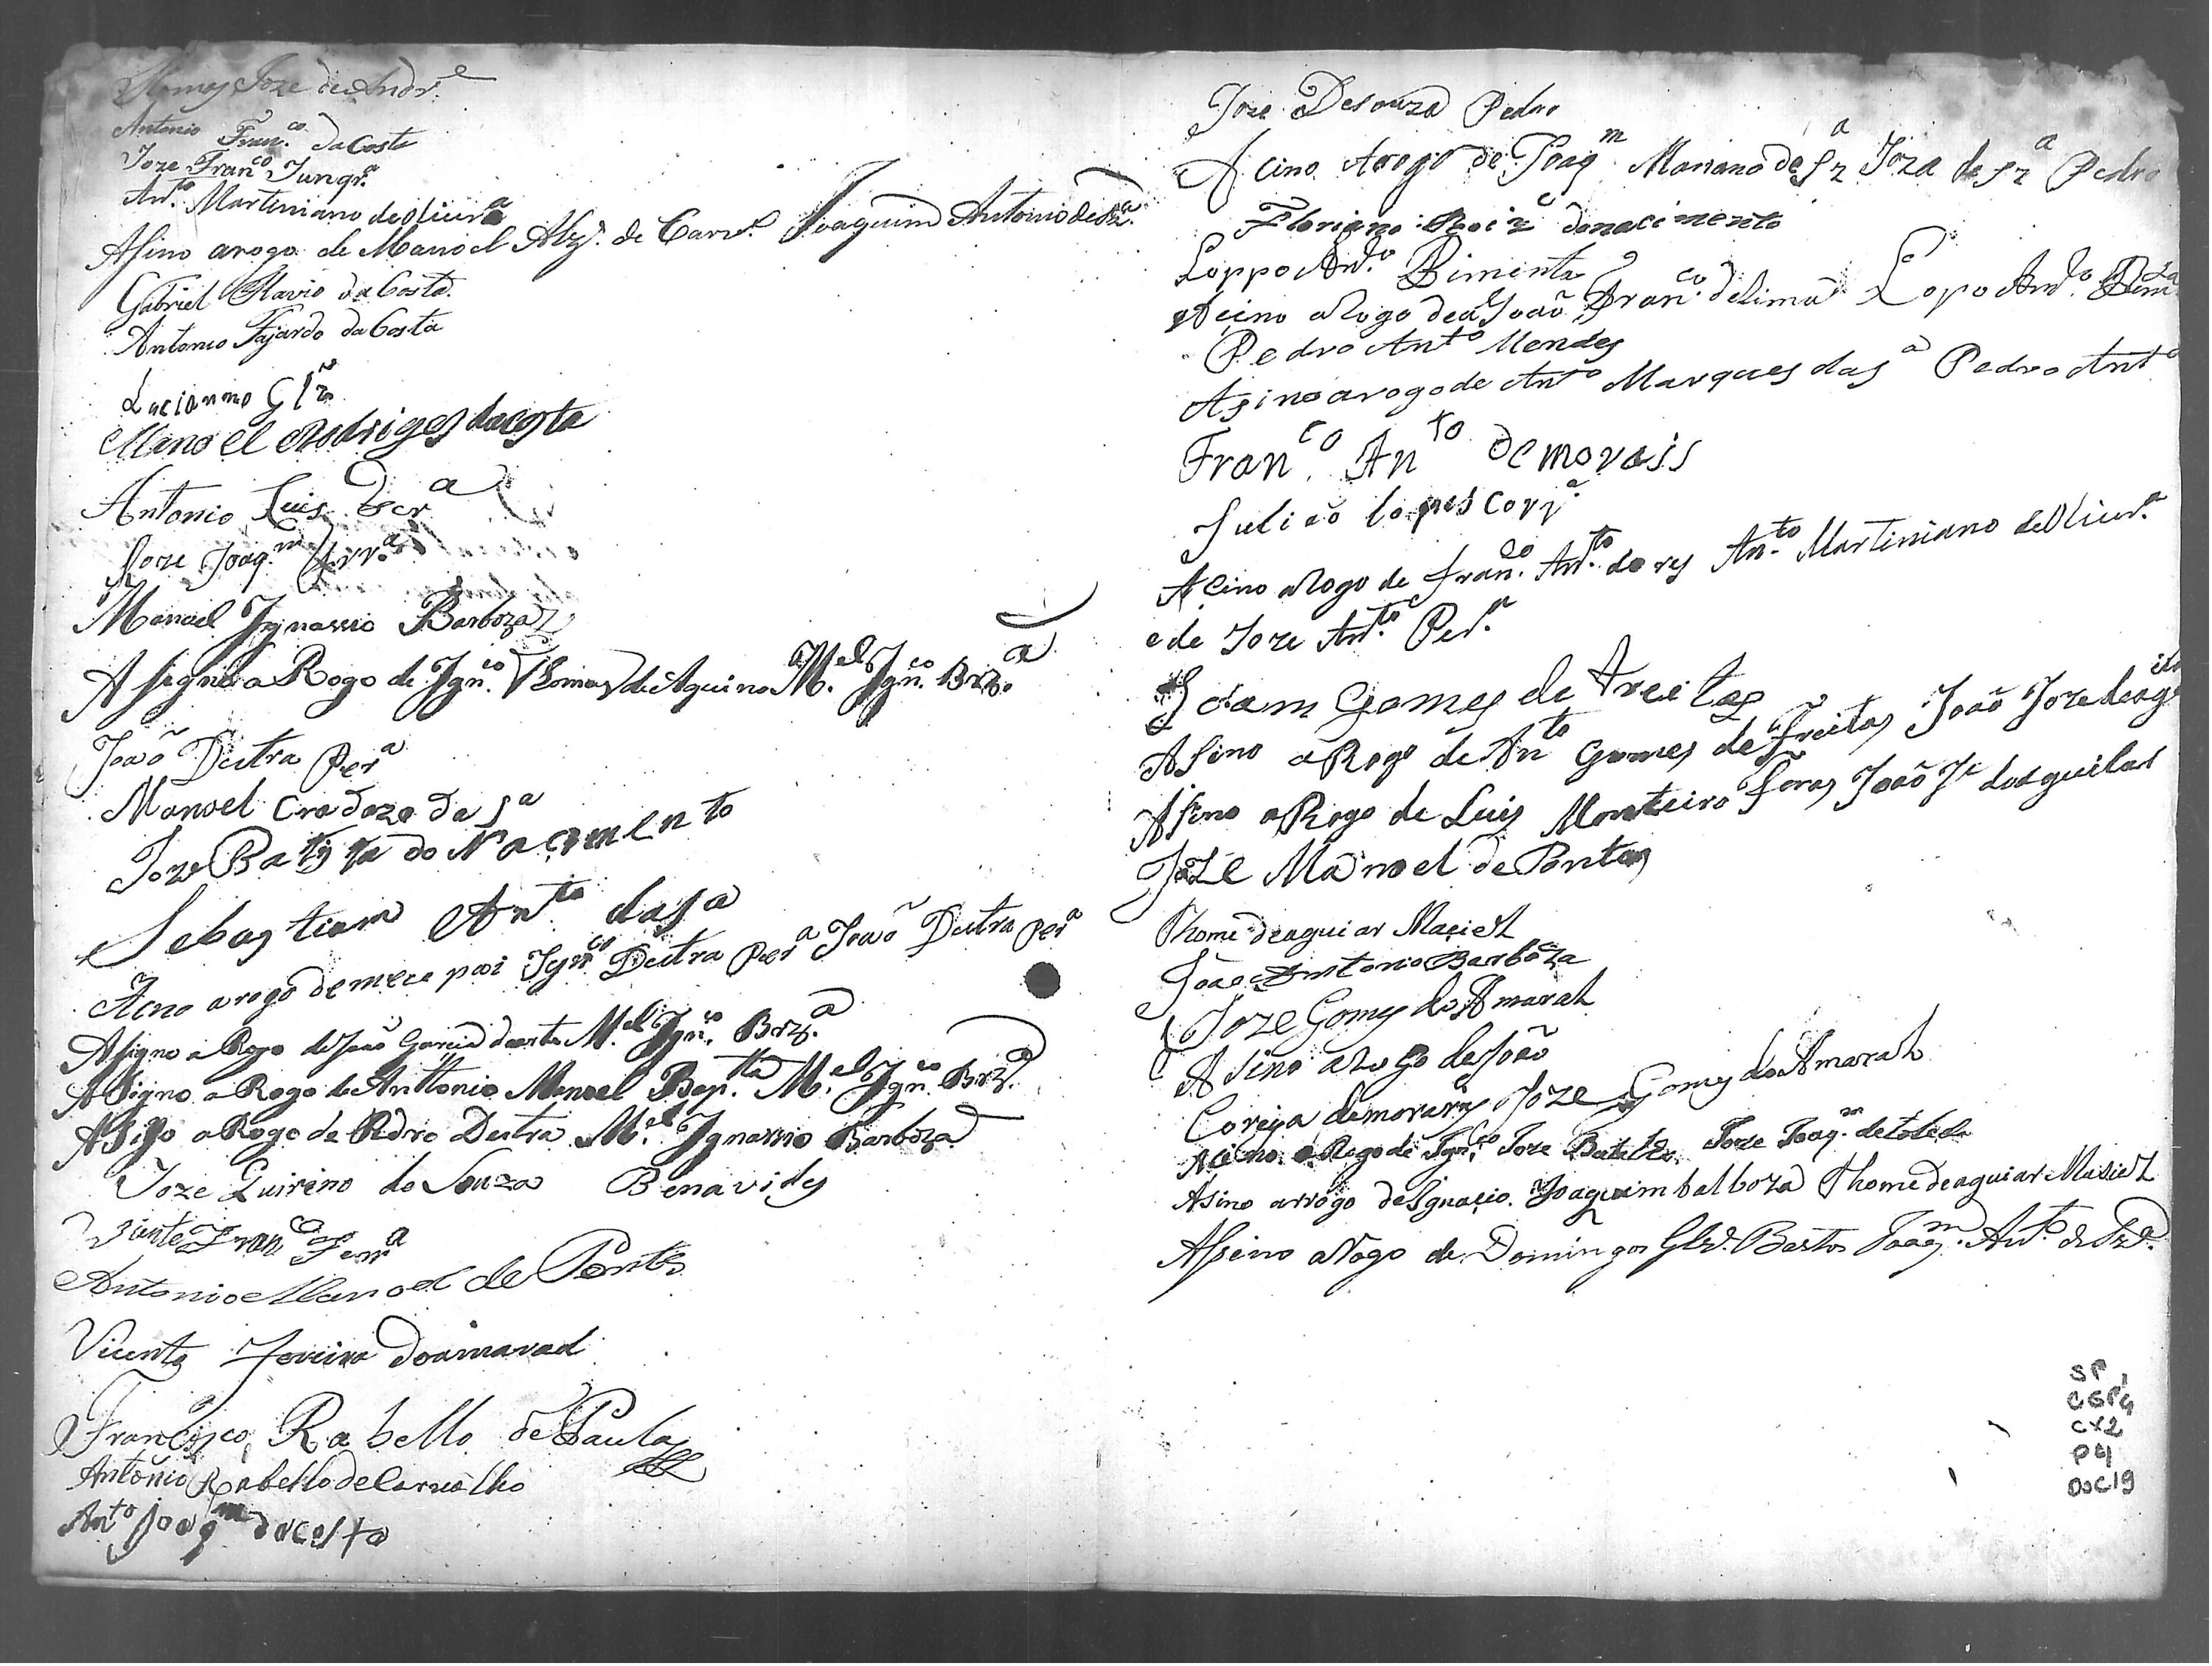 Joze de Andr.e
Antonio Fran.co da Costa
Joze Fran.co Junqr.a
An.to Martiniano de Oliver.a
Asino arogo de Manoel Alz'. de Carv.o Joaquim Antonio de Sz.a
Gabriel Flavio da Costa.
Antonio Fajardo da Costa
Lucianno Glz
Manoel Rodriges da costa
Antonio Luis Per.a
Joze Joaq.m Ferr.a
Manoel Ignassio Barboza
Asigno a Rogo de Ign.co Thomas de Aquino M.el Ign.co Brz.a
João Deutra Per.a
Manoel Cradozo da S.a
Joze Batista do Nacimento
Sebastiam An.to da S.a
Acino arogo de meu pai Ign.co Deutra Per.a João Deutra Per.a
Asigno a Rogo de João Garcia Duarte M.el Ign.co Brz.a
Asigno a Rogo de Anttonio Manoel Bap.ta M.el Ign.co Brz.a
Asigo a Rogo de Pedro Deutra M.el Ignassio Barboza
Joze Quirino de Souza Benavides
Visente Fran.co Ferr.a
Antonio Manoel de Pontes
Vicente Fereira do amaral
Francisco Rabello de Paula
Antonio Rabello de Carvalho
An.to Joaq.m da costa
Joze Desouza Pedro
Acino Arogo de Joaq.m Mariano de Sz.a Joze de Sz.a Pedro
Floriano Roiz donacimento
Loppo An.to Pimenta
Acino a Rogo de João Fran.co de Lima Lopo An.to Pim.ta
Pedro Ant.o Mendes
Asino arogo de Ant.o Marques da S.a Pedro Ant.o
Fran.co An.to de morais
Julião lopes Corr.a
Acino a Rogo de Fran.co An.to do rs An.to Martiniano de Oliver.a
e de Joze An.to Per.a
Joam Gomes de Freitas
Asino a Rogo de An.to Gomes de Freitas João Joze de ag
Asino a Rogo de Luis Monteiro João Je de aguilar
Joze Manoel de Pontes
Thome deaguiar Maciel
João Antonio Barboza
Joze Gomes do Amaral
Asino a Rogo de João
Coreia de moraes Joze Gomes do Amaral
Acino a Rogo de Ign.co Joze Joze Joaq.m de toledo
Asino arrogo de Ignacio Joaquim balboza Thome deaguiar Maciel
Assino a Rogo de Domingos Glz'. Bastos Joaq.m An.to de Sz.a
SP
CGPG
CX2
P4
DOC19